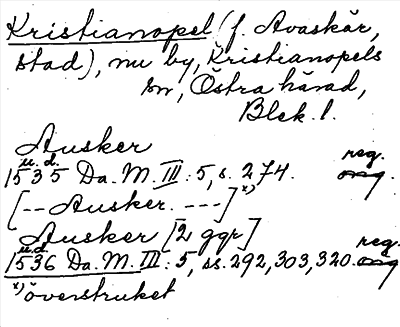 Kristianopel (f. Avaskär,
stad), nu by, Kristianopels
sn, Östra härad,
Blek. l.
Ausker
u.d. reg.
1535 Da. M. III: 5, s. 274. orig.
[-- Ausker. ---] x)
Ausker [2 ggr]
u.d. reg.
1536 Da. M. III: 5, ss. 292, 303, 320. orig.
x) överstruket